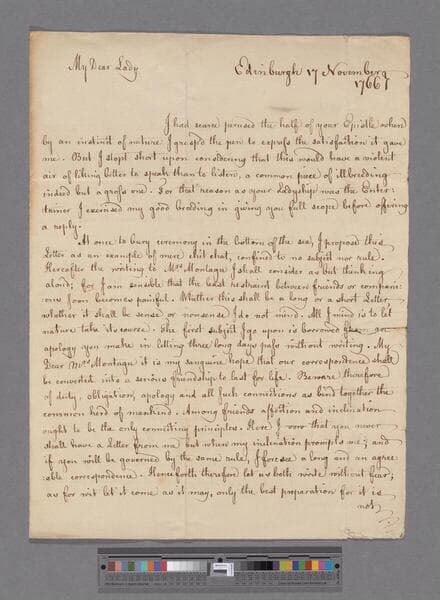 My Dear Lady
Edinburgh 17 November
1766
I had scarce perused the half of your Epistle when
by an instinct of nature I grasp'd the pen to express the satisfaction it gave
me. But I stopt short upon considering that this would have a violent
air of liking better to speak than to listen, a common piece of illbreeding
indeed but a gross one. For that reason as your Ladyship was the Enter:
tainer I exercised my good breeding in giving you full scope before offering
a reply.
At once to bury ceremony in the bottom of the sea, I proposed this
Letter as an example of mere chit chat, confined to no subject nor rule.
Hereafter the writing to Mrs Montagu I shall consider as but thinking
aloud; for I am sensible that the least restraint between friends or compani:
ons soon becomes painful. Whether this shall be a long or a short Letter
whether it shall be sense or nonsense I do not mind. All I mind is to let
nature take its course. The first subject I go upon is borrowed from
apology you make in letting three long days pass without writing. My
Dear Mrs Montagu it is my sanguine hope that our correspondence shall
be converted into a serious friendship to last for life. Beware therefore
of duty, obligation, apology and all such connections as bind together the
common herd of mankind. Among friends affection and inclination
ought to be the only connecting principles. Here I vow that you never
shall have a Letter from me but when my inclination prompts me; and
if you will be governed by the same rule, I foresee a long and an agree:
able correspondence. Henceforth therefore let us both write without fear;
as for wit let it come as it may, only the best preparation for it is
not